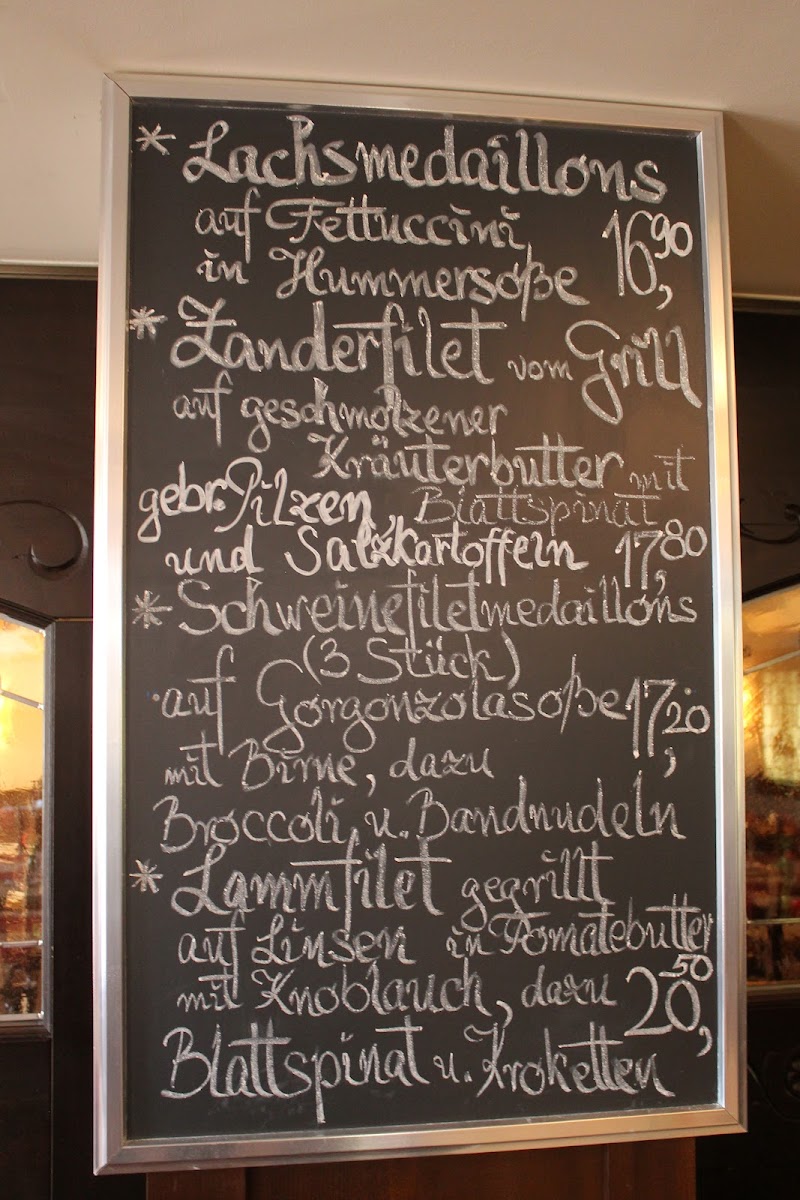 * Lachsmedaillons
auf Fettuccini
in Hummersoße 16,90
* Zanderfilet vom Grill
auf geschmolzener
Kräuterbutter mit
gebr. Pilzen, Blattspinat
und Salzkartoffeln 17,80
* Schweinefiletmedaillons
(3 Stück)
auf Gorgonzolasoße 17,20
mit Birne, dazu
Broccoli u. Bandnudeln
* Lammfilet gegrillt
auf Linsen in Tomatebutter
mit Knoblauch, dazu 20,50
Blattspinat u. Kroketten